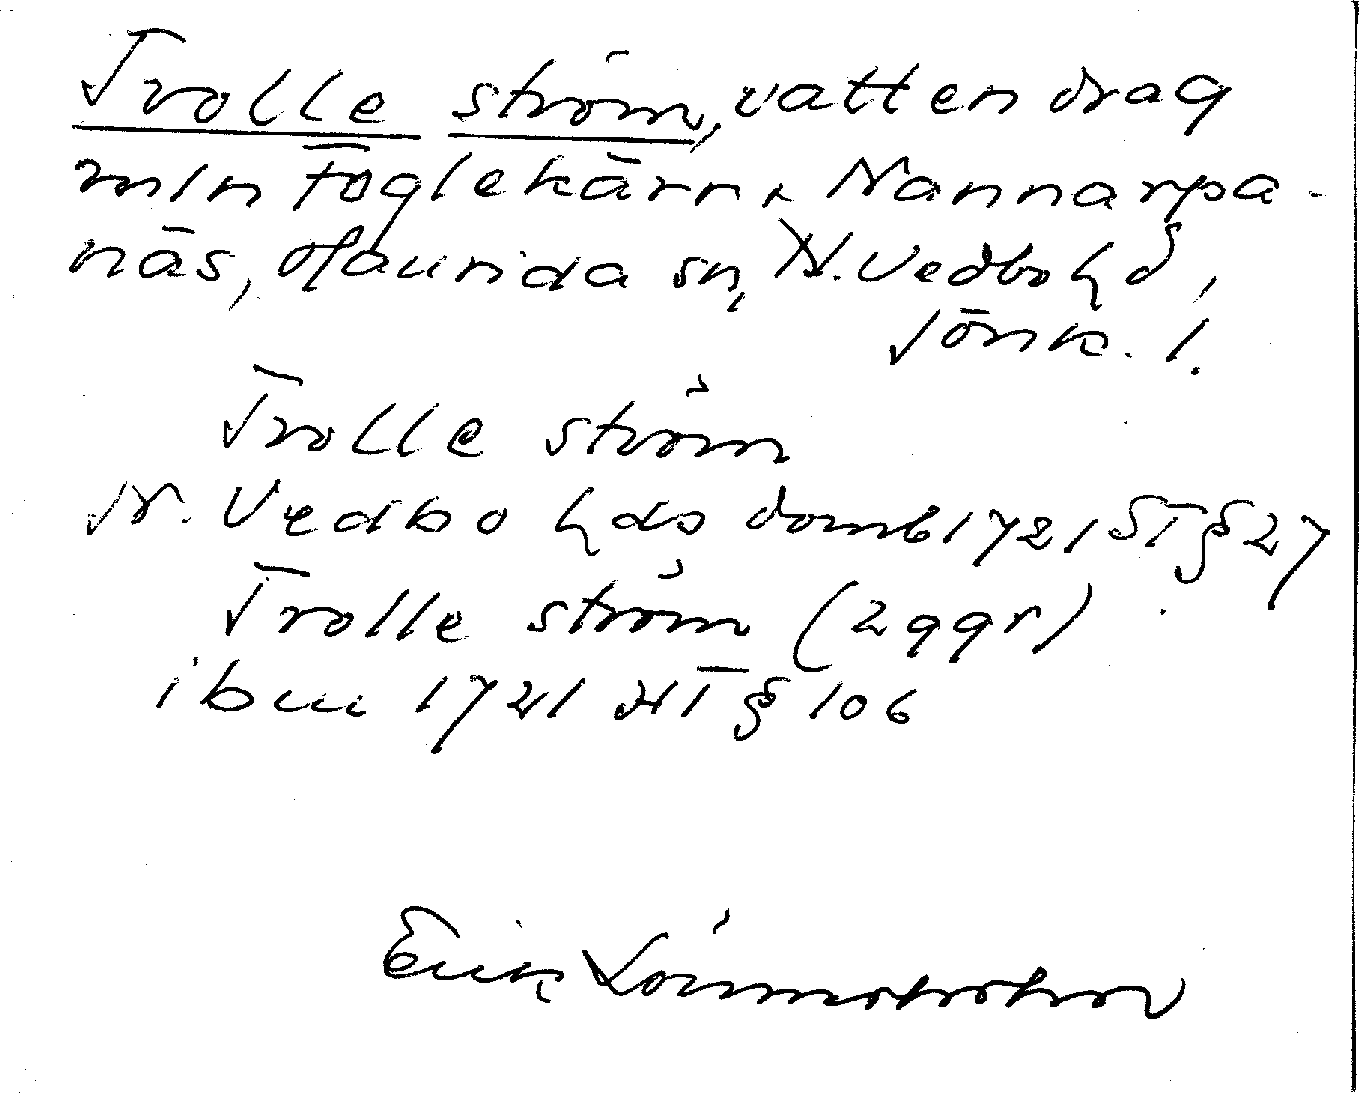 Trolle ström, vattendrag
mln Foglekärr o. Nannarpa-
näs, Haurida sn, N. Vedbo hd,
Jönk. l.
Trolle ström
N. Vedbo hds domb 1721 ST § 27
Trolle ström (2 ggr)
ibm 1721 HT § 106
Erik